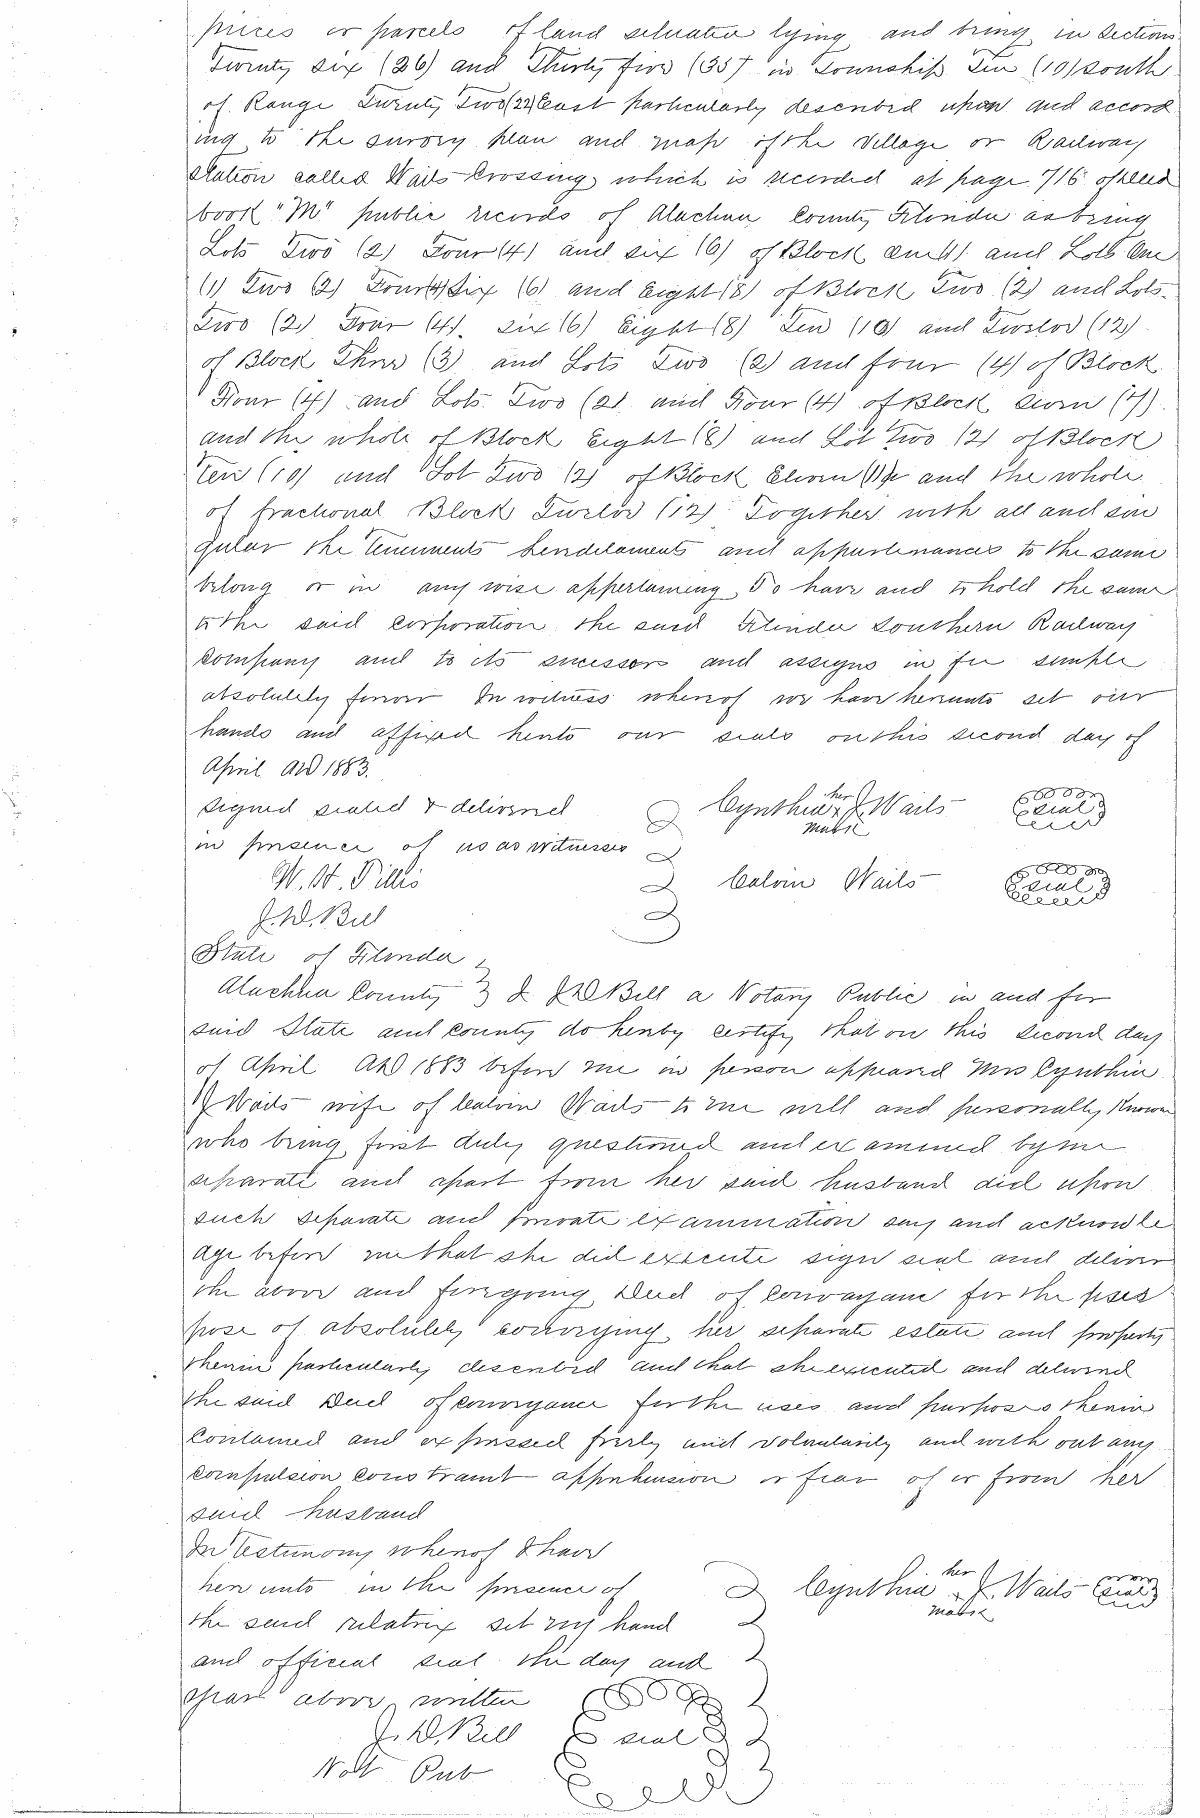 pieces or parcels of land situated lying and being in Sections
Twenty six (26) and Thirty five (35) in Township Ten (10) south
of Range Twenty Two (22) East particularly described upon and accord
ing to the survey plan and map of the village or Railway
station called Waits Crossing which is recorded at page 716 of Deed
book "M" public records of Alachua County Florida as being
Lots Two (2) Four (4) and six (6) of Block One (1) and Lots One
(1) Two (2) Four (4) Six (6) and Eight (8) of Block Two (2) and Lots
Two (2) Four (4) six (6) Eight (8) Ten (10) and Twelve (12)
of Block Three (3) and Lots Two (2) and four (4) of Block
Four (4) and Lots Two (2) and Four (4) of Block seven (7)
and the whole of Block Eight (8) and Lot Two (2) of Block
Ten (10) and Lot Two (2) of Block Eleven (11) and the whole
of fractional Block Twelve (12) Together with all and sin
gular the tenements hendelaments and appurtenances to the same
belong or in any wise appertaining To have and to hold the same
to the said corporation the said Florida Southern Railway
Company and to its successors and assigns in fee simple
absolutely forever In witness whereof we have hereunto set our
hands and affixed hereto our seals on this second day of
April AD 1883.
signed sealed & delivered Cynthia her J. Waits seal
mark
in presence of us as witnesses
W. H. Pillis Calvin Waits seal
J. D. Bell
State of Florida
Alachua County I J D Bell a Notary Public in and for
said State and county do hereby certify that on this second day
of April AD 1883 before me in person appeared Mrs Cynthia
J Waits wife of Calvin Waits to me well and personally Known
who being first duly questioned and examined by me
separate and apart from her said husband did upon
such separate and private examination say and acknowle
dge before me that she did execute sign seal and deliver
the above and foregoing Deed of Conveyance for the
pose of absolutely conveying her separate estate and property
therein particularly described and that she executed and delivered
the said Deed of conveyance for the uses and purposes therein
contained and expressed freely and voluntarily and with out any
compulsion constraint apprehension or fear of or from her
said husband
In Testimony whereof I have
here unto in the presence of Cynthia her J. Waits seal
mark
the said relatrix set my hand
and official seal the day and
year above written
J. D. Bell seal
Not Pub